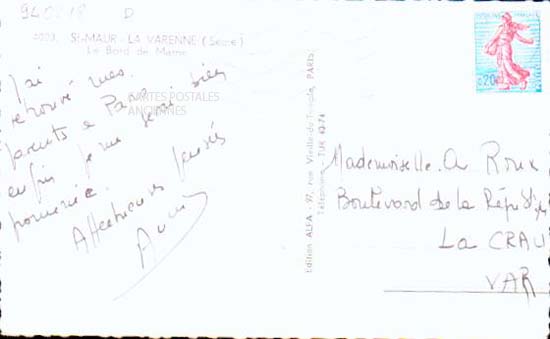 940218 D
4023. St-MAUR - LA VARENNE (Seine)
Le Bord de Marne
J'ai
retrouvé mes
parents à
enfin je me suis bien
promenée.
Affectueuses pensées
CARTES POSTALES
ANCIENNES
Edition ALFA - 97, rue Vieille-du-Temple, PARIS
Téléphone: TUR 63-74
0,20
Mademoiselle A Roux
Boulevard de la République
La CRAU
VAR